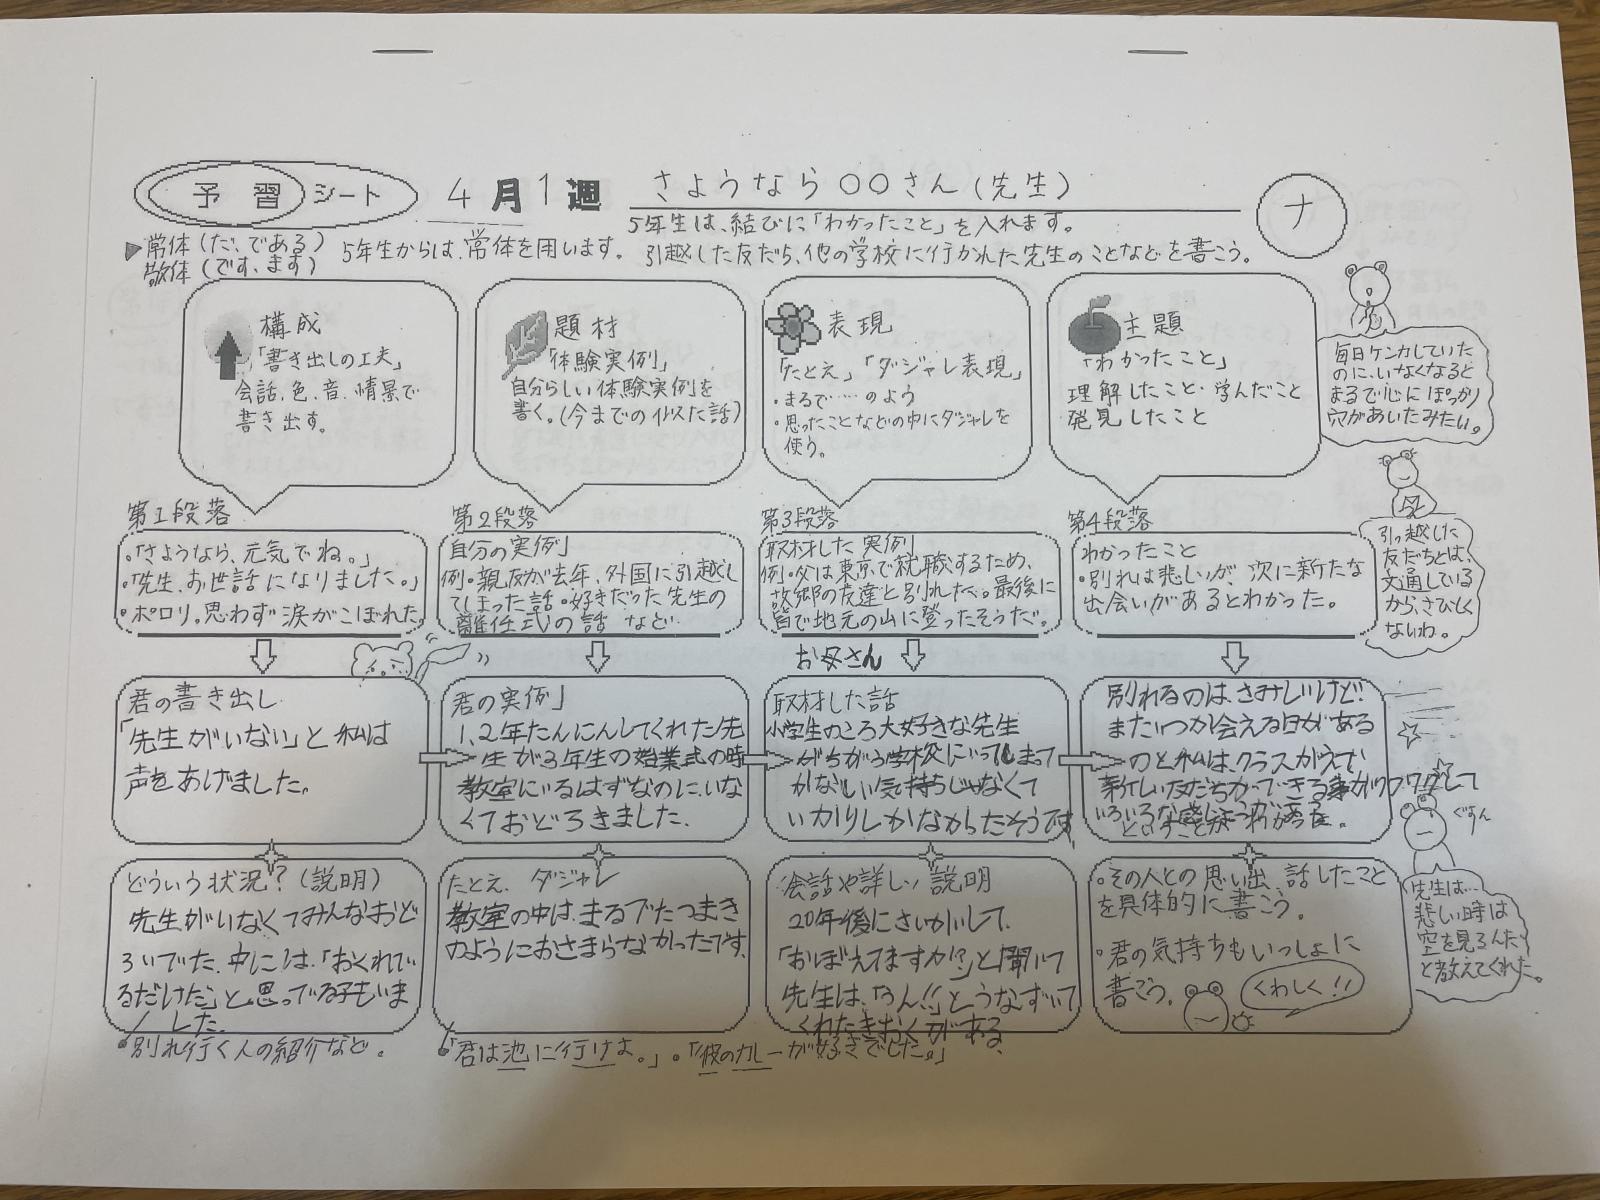 予習シート
4月1週
さようなら○○さん(先生)
ナ
5年生は、結びに「わかったこと」を入れます。
▶常体(だ、である)
敬体(です、ます)
5年生からは、常体を用います。
引越した友だち、他の学校に行かれた先生のことなどを書こう。
構成
「書き出しの工夫」
会話、色、音、情景で
書き出す。
題材
「体験実例」
自分らしい体験実例を
書く。(今までの似た話)
表現
「たとえ」「ダジャレ表現」
・まるで……のよう
・思ったことなどの中にダジャレを
使う。
主題
「わかったこと」
理解したこと・学んだこと
発見したこと
毎日ケンカしていた
のに、いなくなると
まるで心にぽっかり
穴があいたみたい。
第1段落
・「さようなら、元気でね。」
・「先生、お世話になりました。」
・ポロリ。思わず涙がこぼれた
第2段落
自分の実例」
例・親友が去年、外国に引越し
てしまった話・好きだった先生の
離任式の話 など…
第3段落
取材した実例」
例・父は東京で就職するため、
故郷の友達と別れた。最後に
皆で地元の山に登ったそうだ。
第4段落
わかったこと
・別れは悲しいが、次に新たな
出会いがあるとわかった。
引っ越した
友だちとは、
文通している
から、さびしく
ないわ。
君の書き出し
「先生がいない」と私は
声をあげました。
君の実例」
1、2年たんにんしてくれた先
生が3年生の始業式の時
教室にいるはずなのに、いな
くておどろきました。
お母さん
取材した話
小学生のころ大好きな先生
がちがう学校にいってしまって
かなしい気持ちじゃなくて
いかりしかなかったそうです
別れるのは、さみしいけど!
またいつか会える日がある
のと私はクラスがえで
新しい友だちができる事がワクワクして
いろいろな
ぐすん
どういう状況?(説明)
先生がいなくてみんなおど
ろいでた。中には、「おくれてい
るだけだ」と思っている子もいま
した。
・別れ行く人の紹介など。
たとえ、ダジャレ
教室の中は、まるでたつまき
のようにおさまらなかったです。
・「君は池に行けよ。」。「彼のカレーが好きでした。」
会話や詳しい説明
20年後にさいかいして、
「おぼえてますか!?」と聞いて
先生は、「うん!!」とうなずいて
くれたきおくがある。
・その人との思い出、話したこと
を具体的に書こう。
・君の気持ちもいっしょに
書こう。
くわしく!!
先生は…
悲しい時は
空を見るんだ
と教えてくれた。